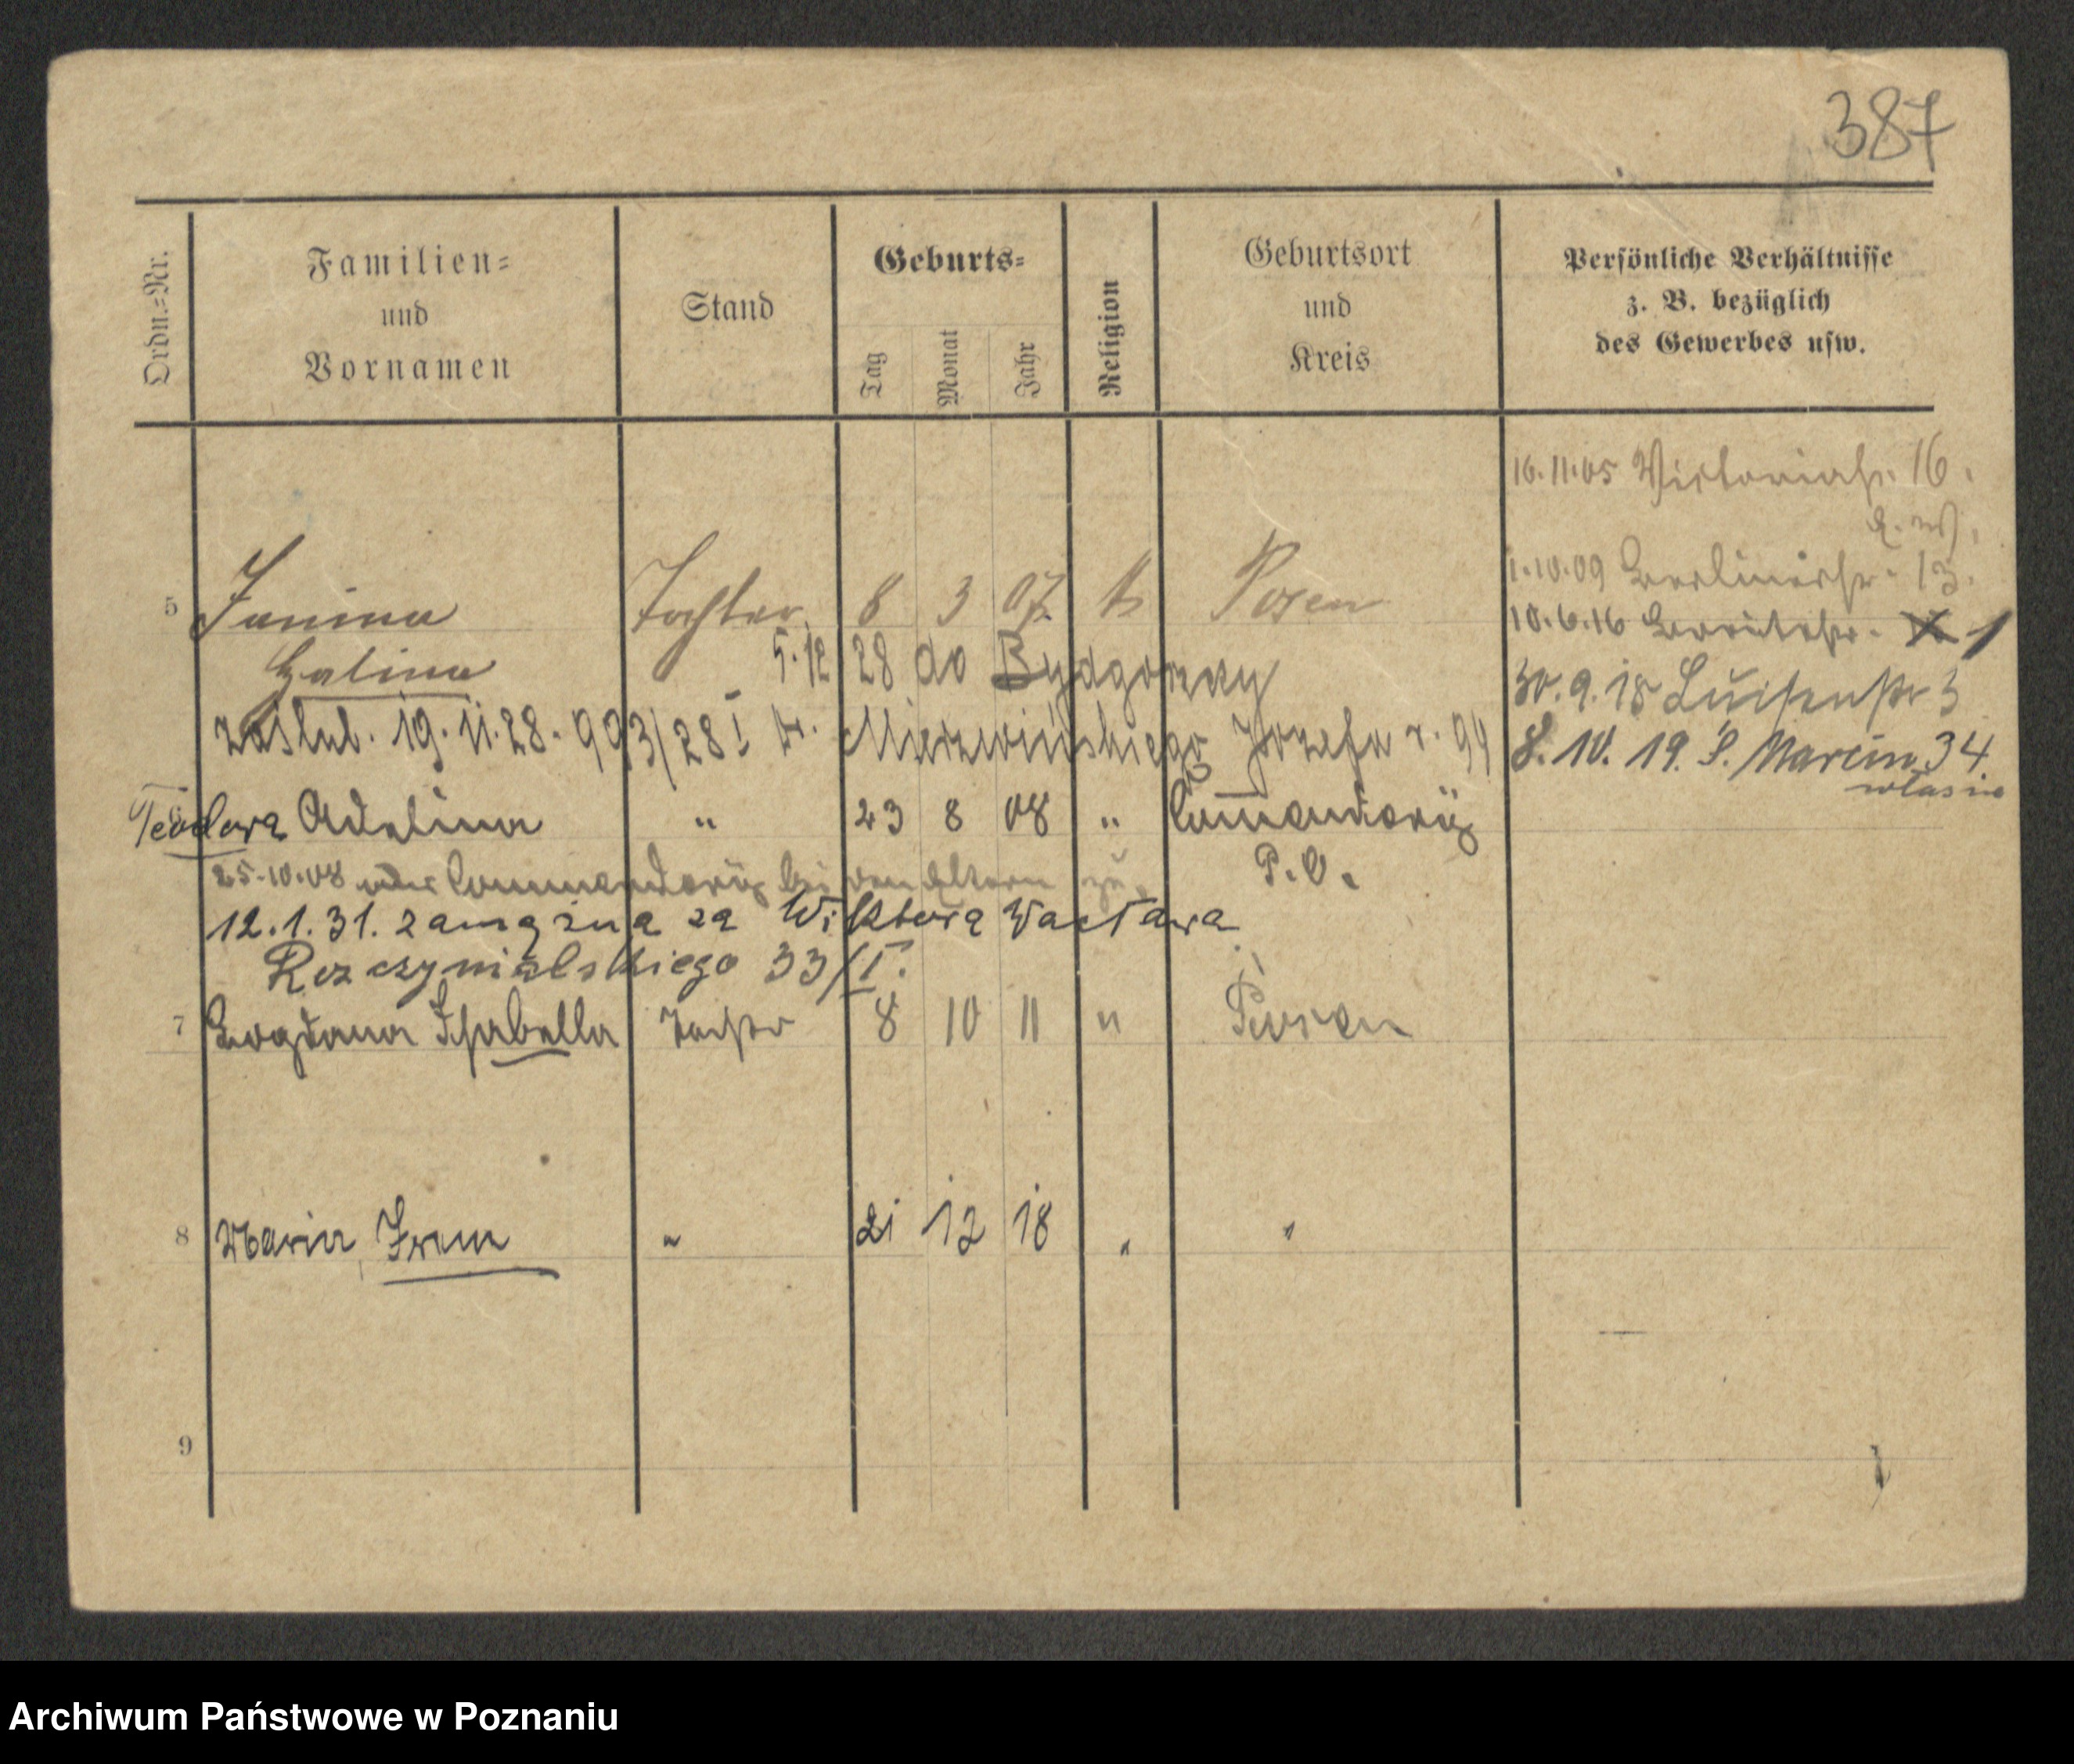 387
Ordn.=Nr.
Familien=
und
Vornamen
Stand
Geburts=
Tag
Monat
Jahr
Religion
Geburtsort
und
Kreis
Persönliche Verhältnisse
z. B. bezüglich
des Gewerbes usw.
16.11.05 Victoriastr. 16.
1.10.09 Berlinerstr. 13.
5 Janina Tochter 8 3 07 k Posen
10.6.16 1
Halina 5.12 28 do Bydgoszczy
30.9.18 Luisenstr 3
zaślub. 19.11.28. 993/28 I Mierzwińskiego Józefa r. 94
8.10.19. S. Marcin 34
Teodora Adelina " 23 8 08 " Commenderie
P.O.
25.10.08 von Commenderie bei den Eltern zu.
12.1.31. zamężna za Wiktora Wacława
33/I.
7 Bogdana Isabella Tochter 8 10 11 " Posen
8 Maria Irena " 21 12 18 " "
9
Archiwum Państwowe w Poznaniu